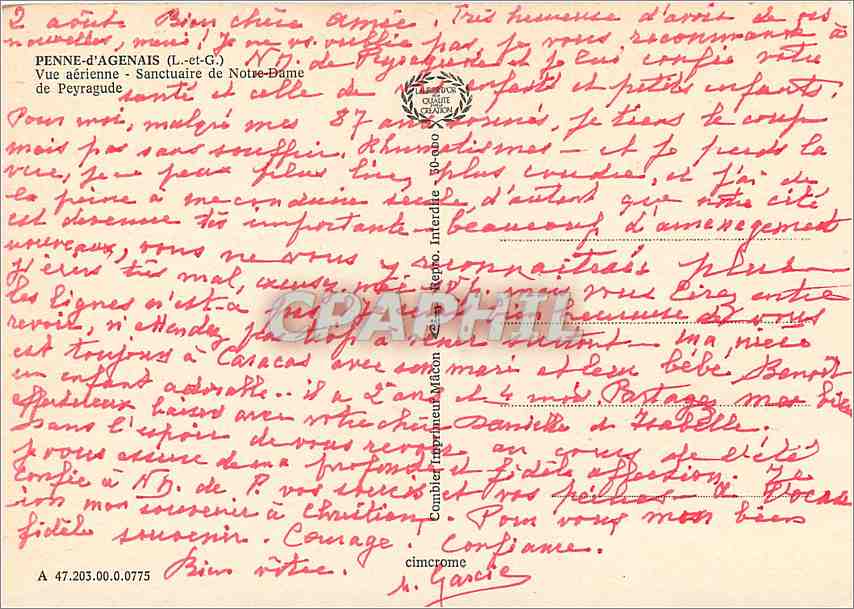 2 août Bien chère amie. Très heureuse d'avoir de vos
nouvelles, merci! Je ne vs oublie pas, je vous recommande à
PENNE-d'AGENAIS (L.-et-G.)
Vue aérienne - Sanctuaire de Notre-Dame
de Peyragude
N.D. de Peyragude et je lui confie votre
santé et celle de vos enfants et petits enfants.
LABEL D'OR
QUALITÉ
CRÉATION
Pour moi, malgré mes 87 ans sonnés, je tiens le coup
mais pas sans souffrir. Rhumatismes - et je perds la
vue, je ne peux plus lire, plus coudre, et j'ai de
la peine à me conduire seule, d'autant que notre cité
est devenue très importante - beaucoup d'aménagement
nouveaux, vous ne vous y reconnaîtrais plus -
J'écris très mal, excusez moi mais vous lirez entre
les lignes n'est-ce pas, je serais heureuse de vous
revoir, n'attendez pas trop à venir surtout - ma nièce
est toujours à Caracas avec son mari et leur bébé Benoît
un enfant adorable.. il a 2 ans et 4 mois. Partagez mes bien
affectueux baisers avec votre chère Danielle et Isabelle.
Dans l'espoir de vous revoir au cours de l'été
je vous assure de ma profonde et fidèle affection. Je
confie à N.D. de P. vos soucis et vos peines. à l'occas
ion mon souvenir à Christian. Pour vous mon bien
fidèle souvenir. Courage. Confiance.
Bien vôtre.
M. Garcie
Combier Imprimeur Mâcon "CIM" Repro. Interdite - 30-000
CPAPHIL
cimcrome
A 47.203.00.0.0775